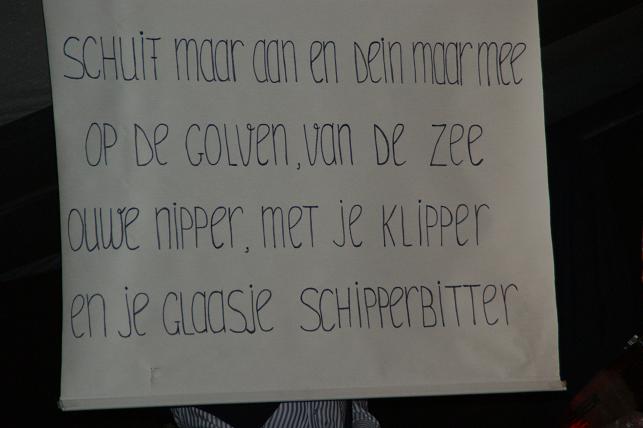 SCHUIT maar aan en Dein maar mee
OP DE GOLVEN, van DE Zee
ouwe nipper, meT je KLIPPer
en je GLaasje SCHIPPerBITTer